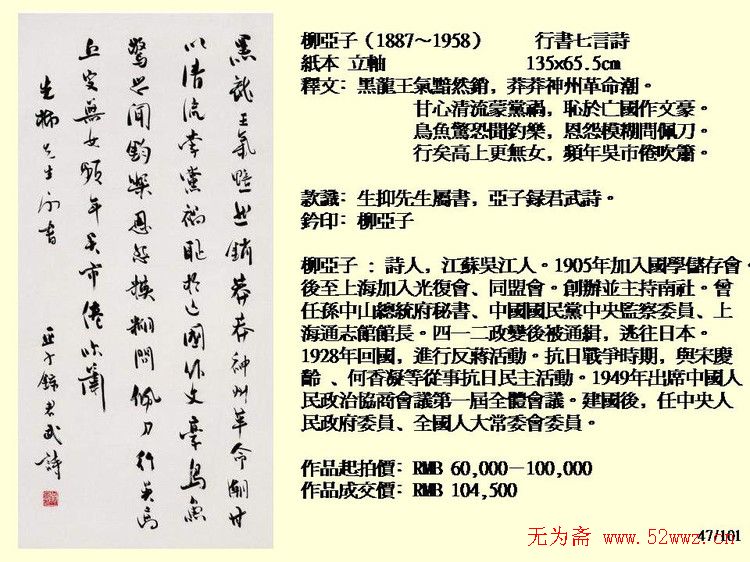 黑龍王氣黯然銷莽莽神州革命潮甘
以清流蒙黨禍恥於亡國作文豪鳥魚
驚恐聞鈞樂恩怨模糊問佩刀行矣高
丘更無女頻年吳市倦吹簫
生抑先生屬書
亞子錄君武詩
柳亞子（1887～1958） 行書七言詩
紙本 立軸 135x65.5cm
釋文：黑龍王氣黯然銷，莽莽神州革命潮。
甘心清流蒙黨禍，恥於亡國作文豪。
鳥魚驚恐聞鈞樂，恩怨模糊問佩刀。
行矣高上更無女，頻年吳市倦吹簫。
款識：生抑先生屬書，亞子録君武詩。
鈐印：柳亞子
柳亞子 ：詩人，江蘇吳江人。1905年加入國學儲存會。
後至上海加入光復會、同盟會。創辦並主持南社。曾
任孫中山總統府秘書、中國國民黨中央監察委員、上
海通志館館長。四一二政變後被通緝，逃往日本。
1928年回國，進行反蔣活動。抗日戰爭時期，與宋慶
齡 、何香凝等從事抗日民主活動。1949年出席中國人
民政治協商會議第一屆全體會議。建國後，任中央人
民政府委員、全國人大常委會委員。
作品起拍價：RMB 60,000－100,000
作品成交價：RMB 104,500
47/101
无为斋 www.52wwz.cn